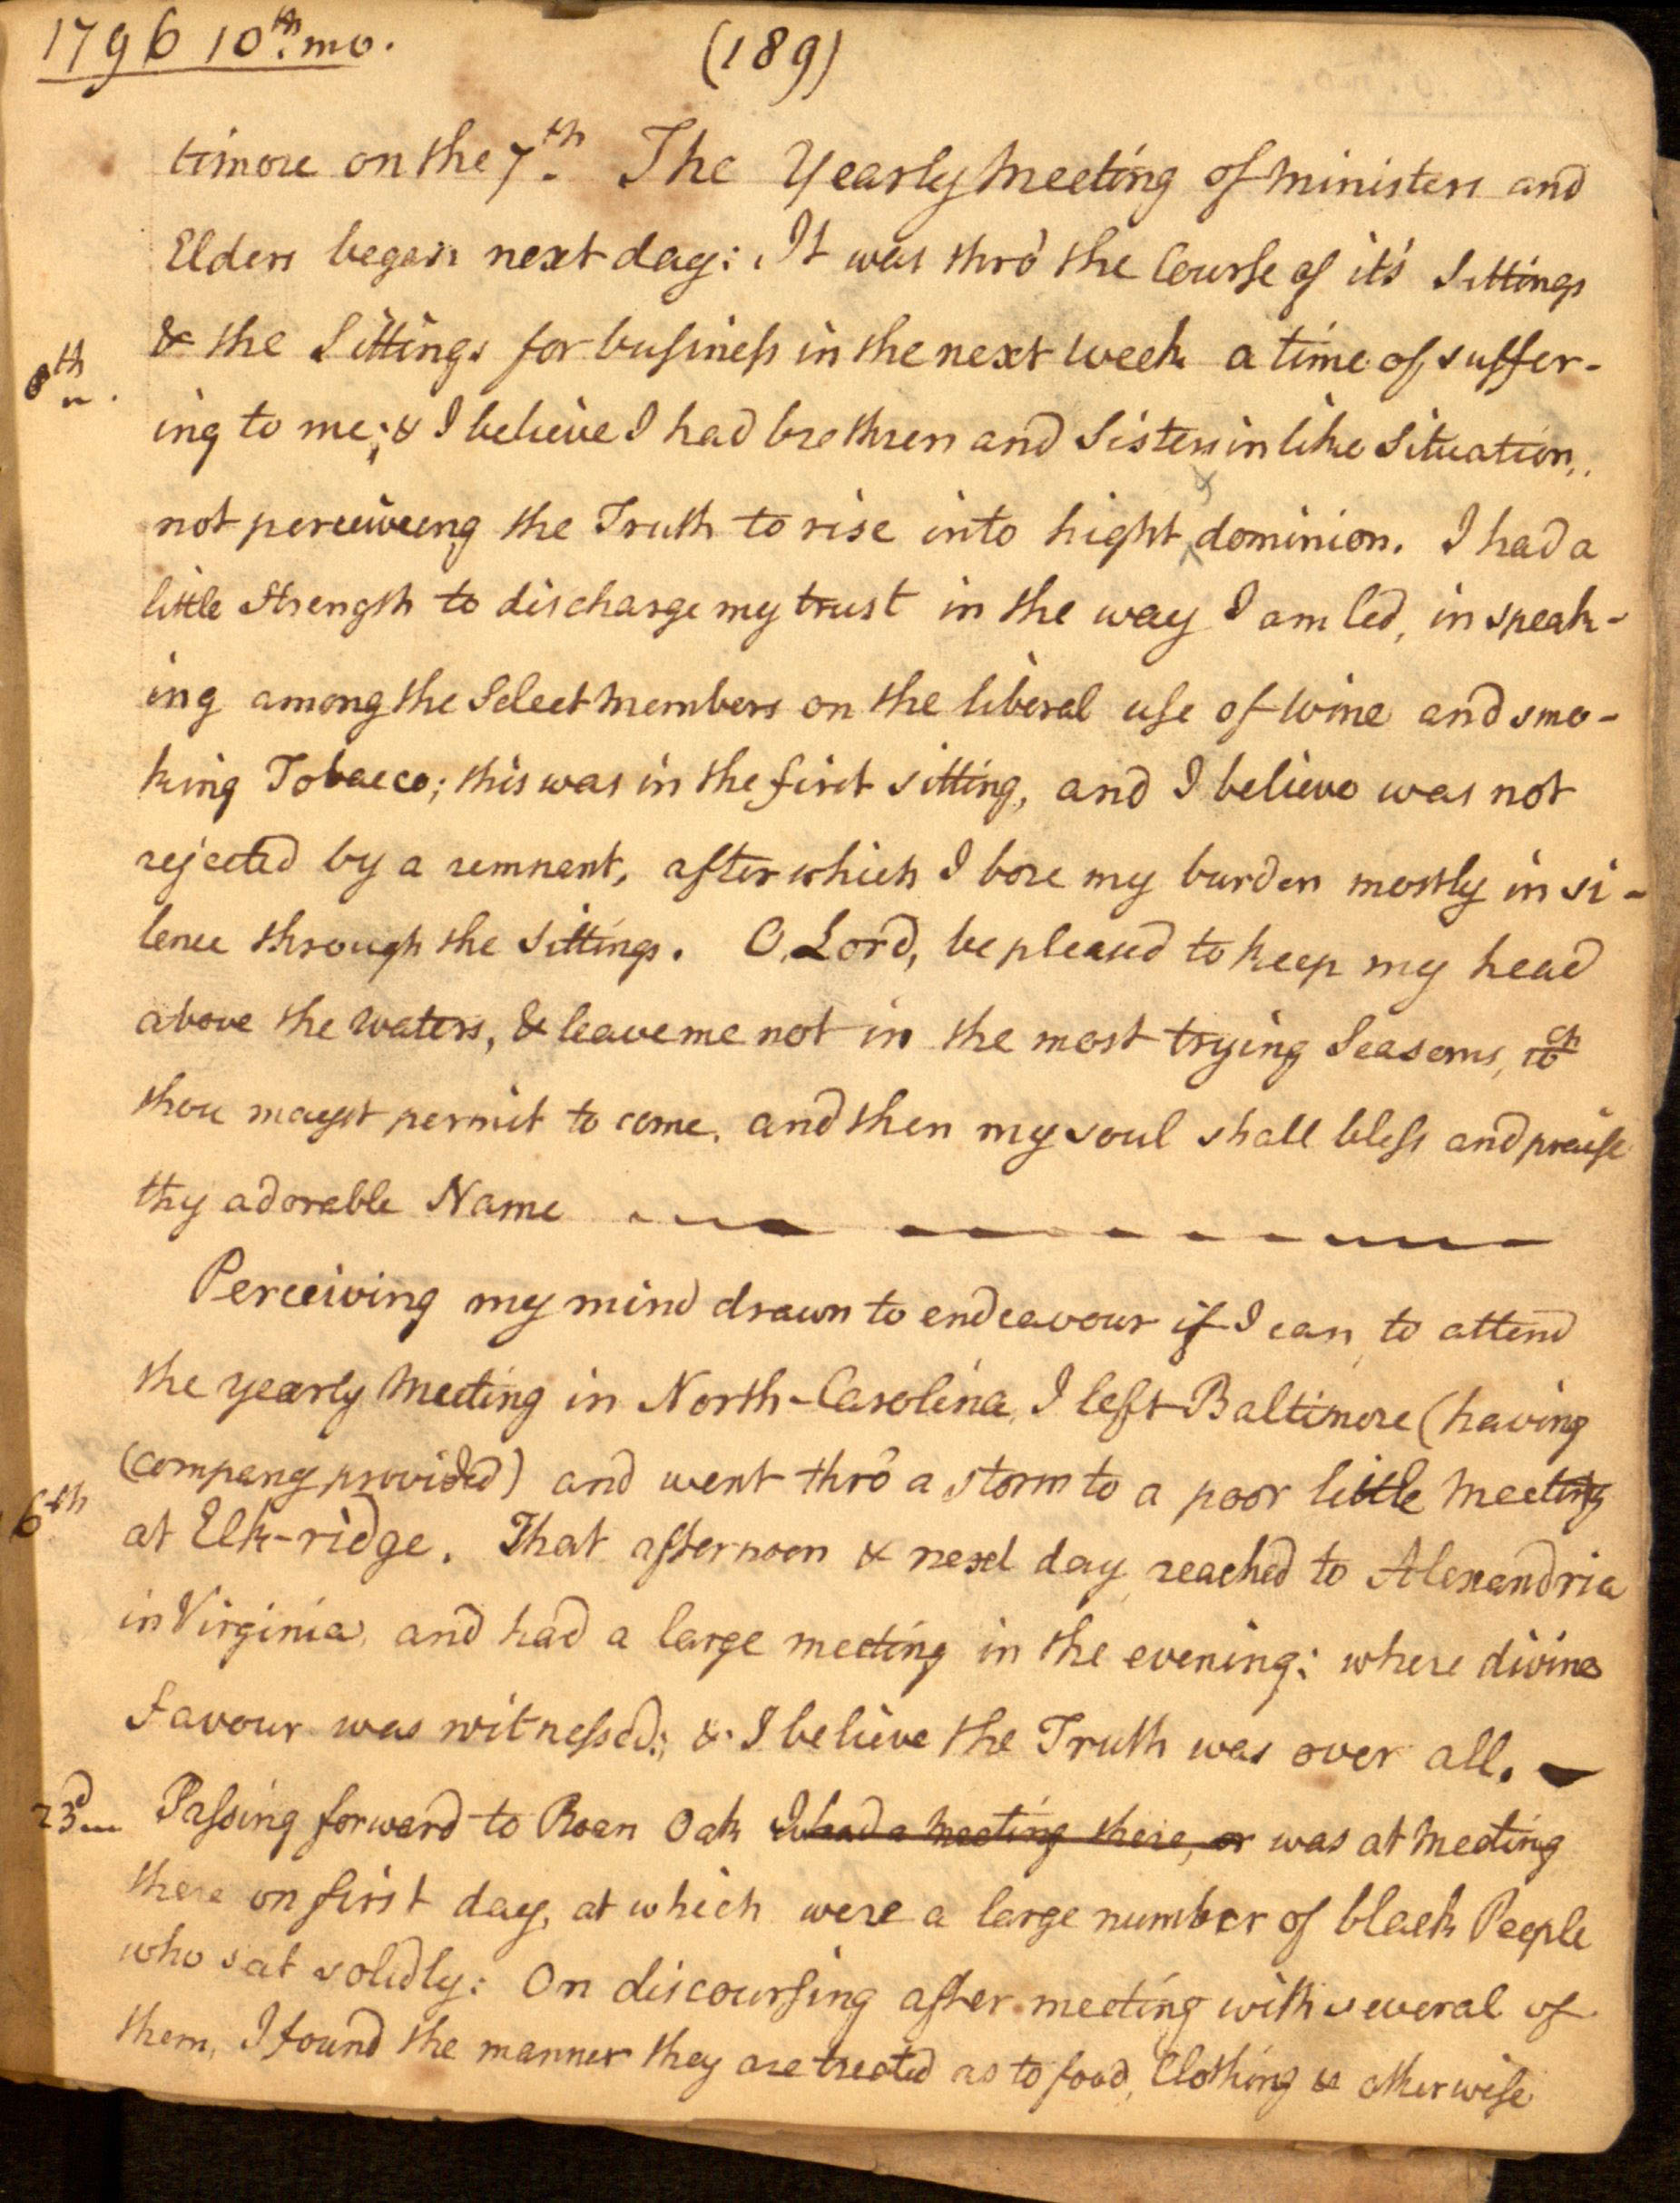 1796 10th. mo.
(189)
timore on the 7th. The Yearly Meeting of Ministers and
Elders began next day: It was thro' the Course of it's Sittings
8th. & the Sittings for business in the next week a time of suffer-
ing to me; & I believe I had brethren and Sisters in like Situation,
not perceiveing the Truth to rise into hight & dominion. I had a
little Strength to discharge my trust in the way I am led, in speak-
ing among the Select Members on the liberal use of Wine and smo-
king Tobacco; this was in the first sitting, and I believe was not
rejected by a remnant, after which I bore my burden mostly in si-
lence through the Sittings. O, Lord, be pleased to keep my head
above the waters, & leave me not in the most trying Seasons,
thou mayst permit to come, and then my soul shall bless and praise
thy adorable Name
Perceiving my mind drawn to endeavour if I can, to attend
the yearly Meeting in North-Carolina, I left Baltimore (having
(company provided) and went thro' a storm to a poor little Meeting
6th at Elk-ridge. That afternoon & next day reached to Alexandria
in Virginia, and had a large meeting in the evening: where divine
favour was witnessed; & I believe the Truth was over all.
23d Passing forward to Roan Oak I had a Meeting there, or was at Meeting
there on first day, at which were a large number of black People
who sat solidly: On discoursing after meeting with several of
them, I found the manner they are treated as to food, Clothing & otherwise